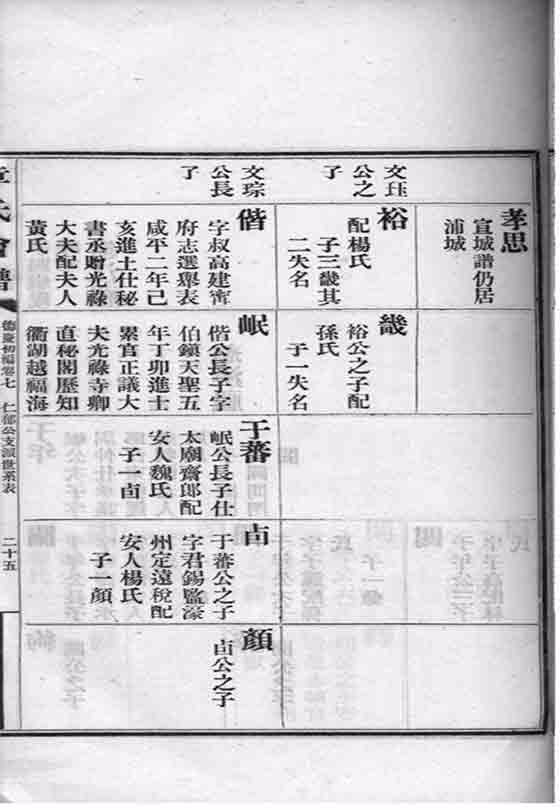 孝思
宣城譜仍居
浦城
文玨
公之
子
裕
配楊氏
子三畿其
二失名
畿
裕公之子配
孫氏
子一失名
文琮
公長
子
偕
字叔高建甯
府志選舉表
咸平二年己
亥進士仕秘
書丞贈光祿
大夫配夫人
黃氏
岷
偕公長子字
伯鎮天聖五
年丁卯進士
累官正議大
夫光祿寺卿
直秘閣歷知
衢湖越福海
于蕃
岷公長子仕
太廟齋郎配
安人魏氏
子一卣
卣
于蕃公之子
字君錫監濠
州定遠稅配
安人楊氏
子一顏
顏
卣公之子
章氏會譜
德慶初編卷七
仁郁公支派世系表
二十五